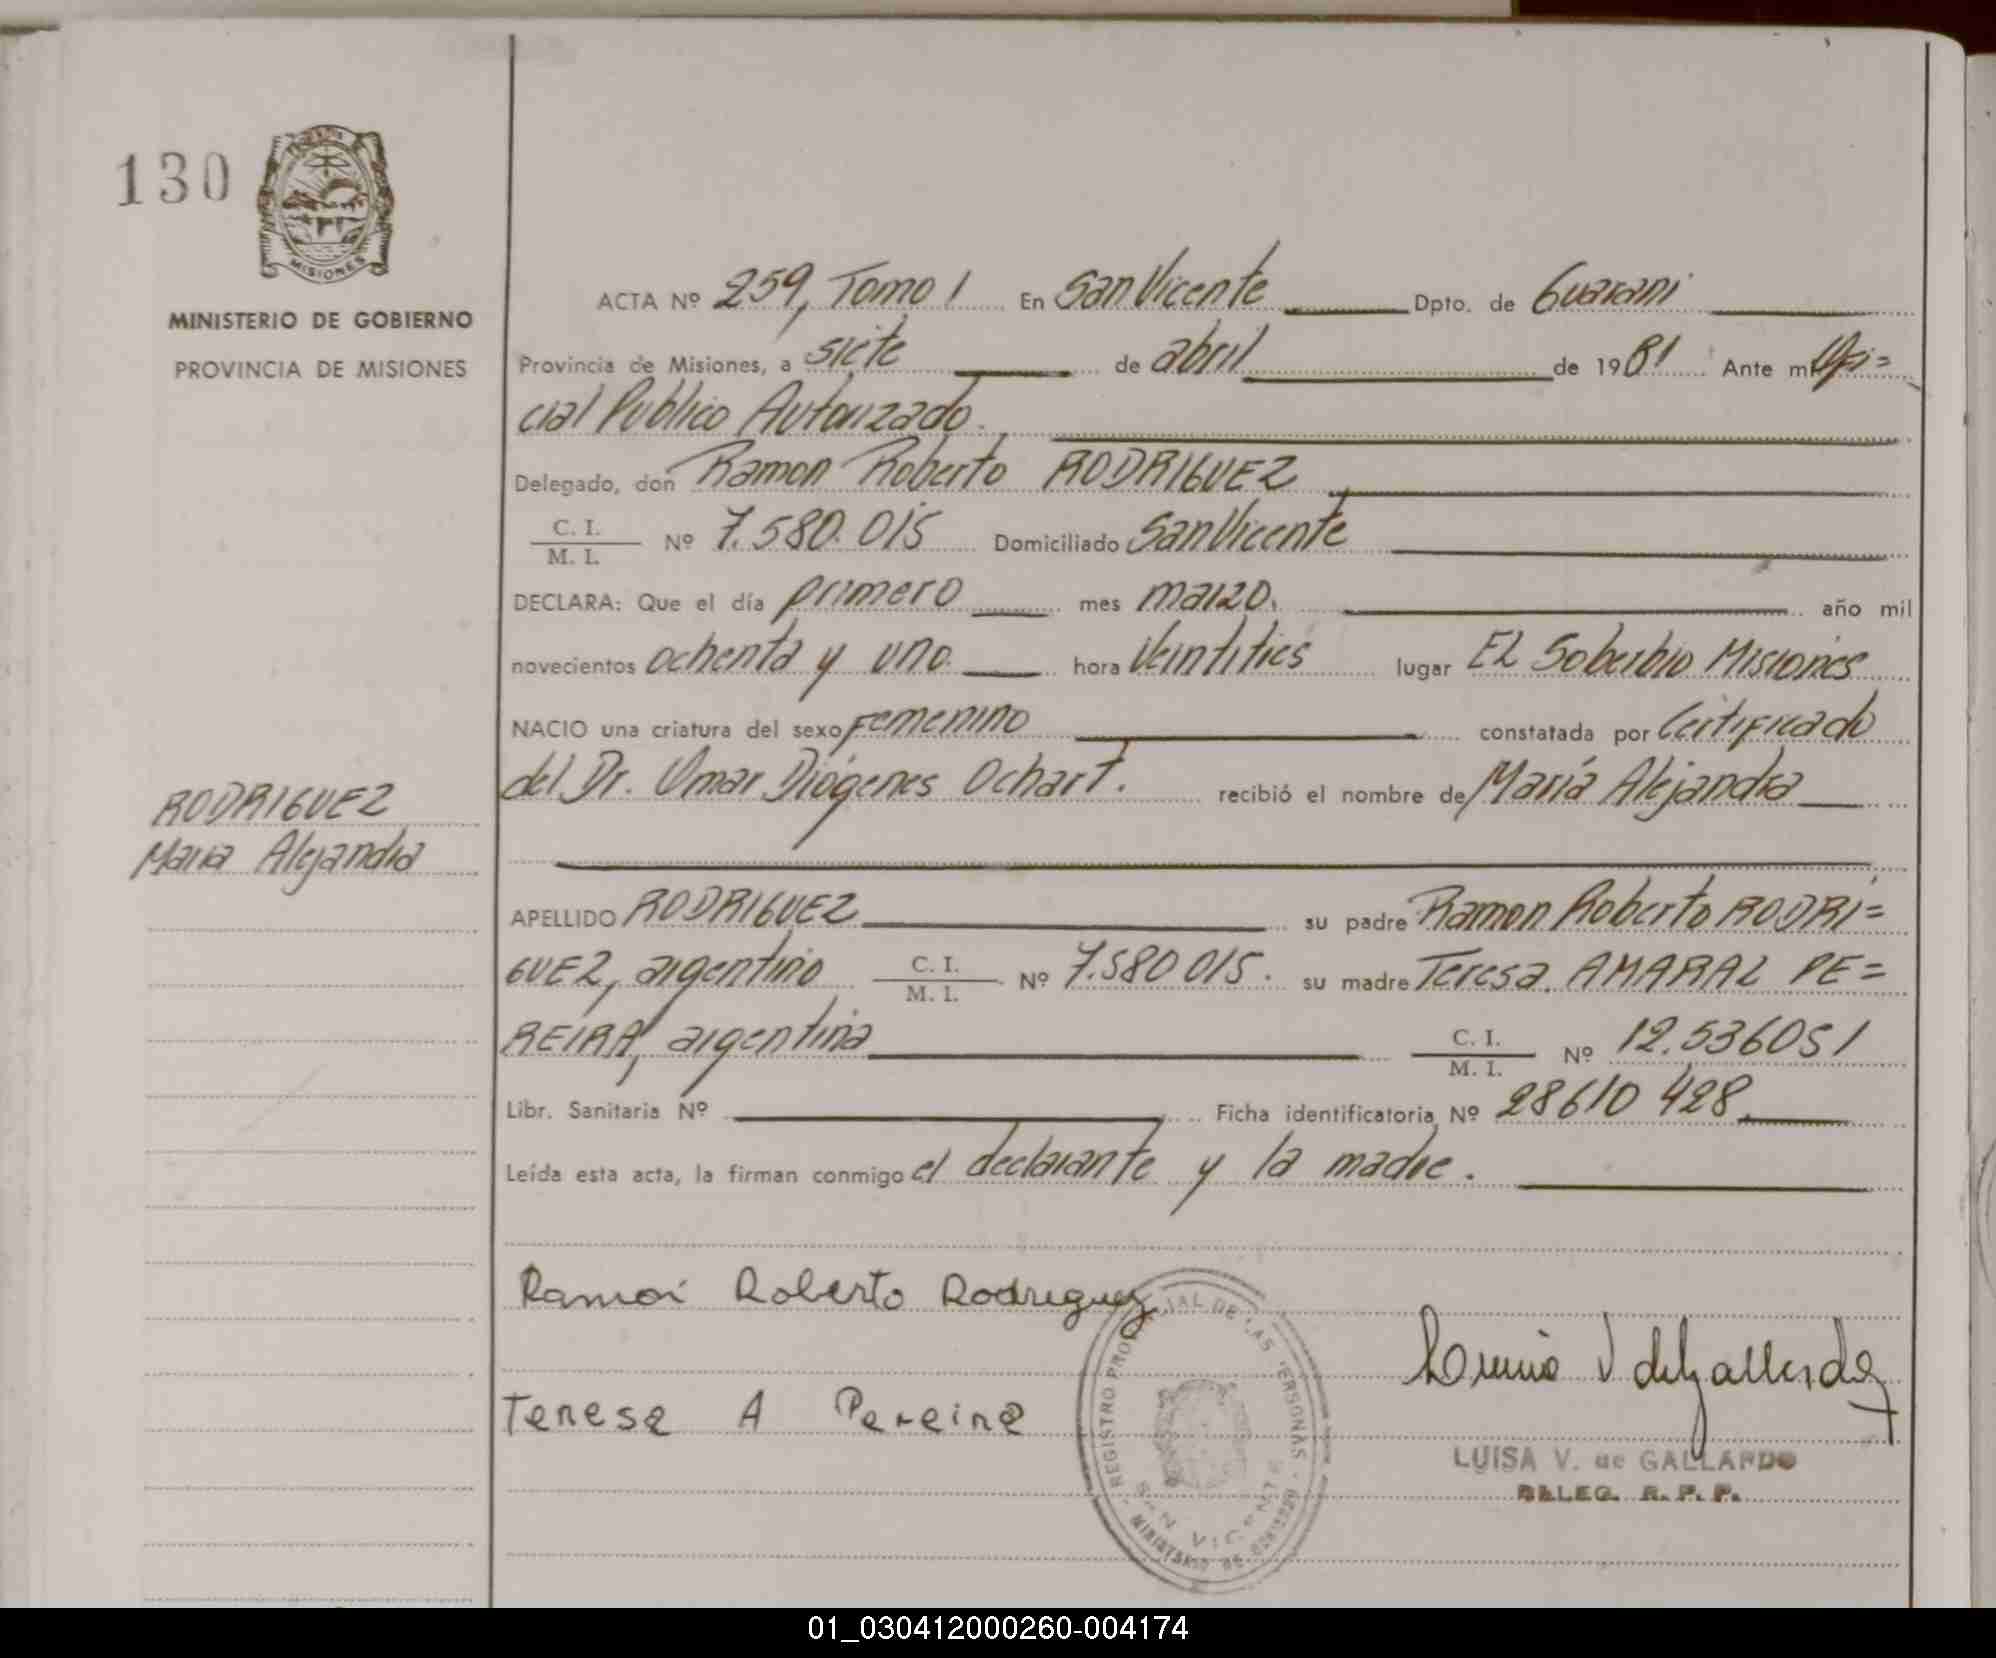 130
MISIONES
MINISTERIO DE GOBIERNO
PROVINCIA DE MISIONES
ACTA Nº 259, Tomo 1 En San Vicente Dpto. de Guarani
Provincia de Misiones, a siete de abril de 1981 Ante mi Ofi=
cial Publico Autorizado.
Delegado, don Ramon Roberto RODRIGUEZ
C. I.
M. I. Nº 7.580.015 Domiciliado San Vicente
DECLARA: Que el día primero mes marzo. año mil
novecientos ochenta y uno. hora veintitres lugar EL Soberbio Misiones
NACIO una criatura del sexo Femenino constatada por Certificado
del Dr. Omar Diógenes Ochart. recibió el nombre de María Alejandra
RODRIGUEZ
Maria Alejandra
APELLIDO RODRIGUEZ su padre Ramon Roberto RODRI=
GUEZ, argentino C. I. M. I. Nº 7.580 015. su madre Teresa AMARAL PE=
REIRA, argentina C. I. M. I. Nº 12.536051
Libr. Sanitaria Nº Ficha identificatoria Nº 28610 428
Leída esta acta, la firman conmigo el declarante y la madre.
Ramon Roberto Rodriguez
Teresa A Pereira
REGISTRO PROVINCIAL DE LAS PERSONAS
SAN VICENTE
MINISTERIO DE GOBIERNO
Luisa V de Gallardo
LUISA V. de GALLARDO
DELEG. R. P. P.
01_030412000260-004174